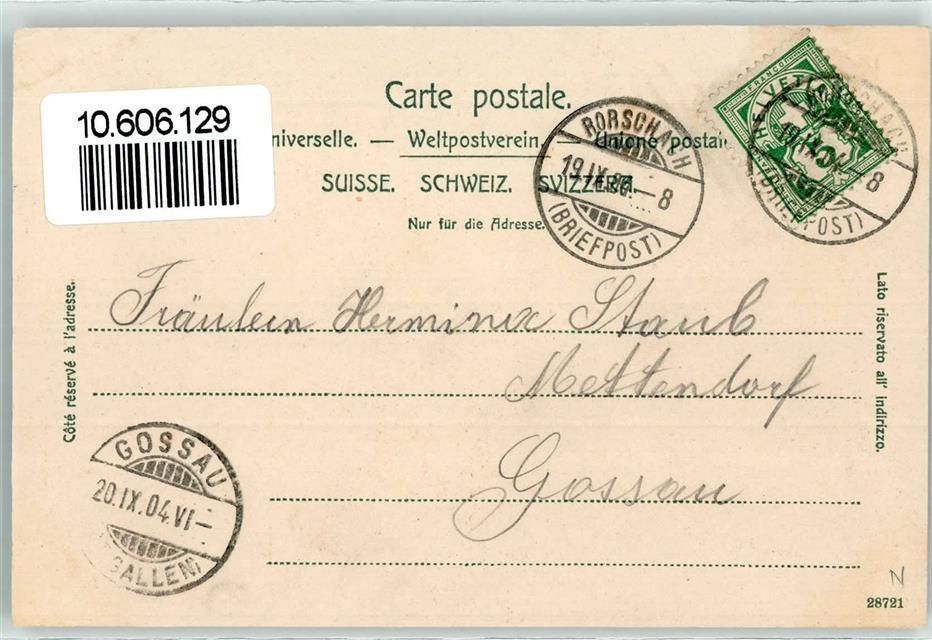 Carte postale.
10.606.129
niverselle. — Weltpostverein. — Unione postal
SUISSE. SCHWEIZ. SVIZZERA.
Nur für die Adresse.
RORSCHACH
19.IX.04.—8
(BRIEFPOST)
FRANCO
HELVETIA
Côté réservé à l'adresse.
Lato riservato all' indirizzo.
Fräulein Hermine Staub
Mettendorf
Gossau
GOSSAU
20.IX.04.VI—
GALLEN)
N
28721